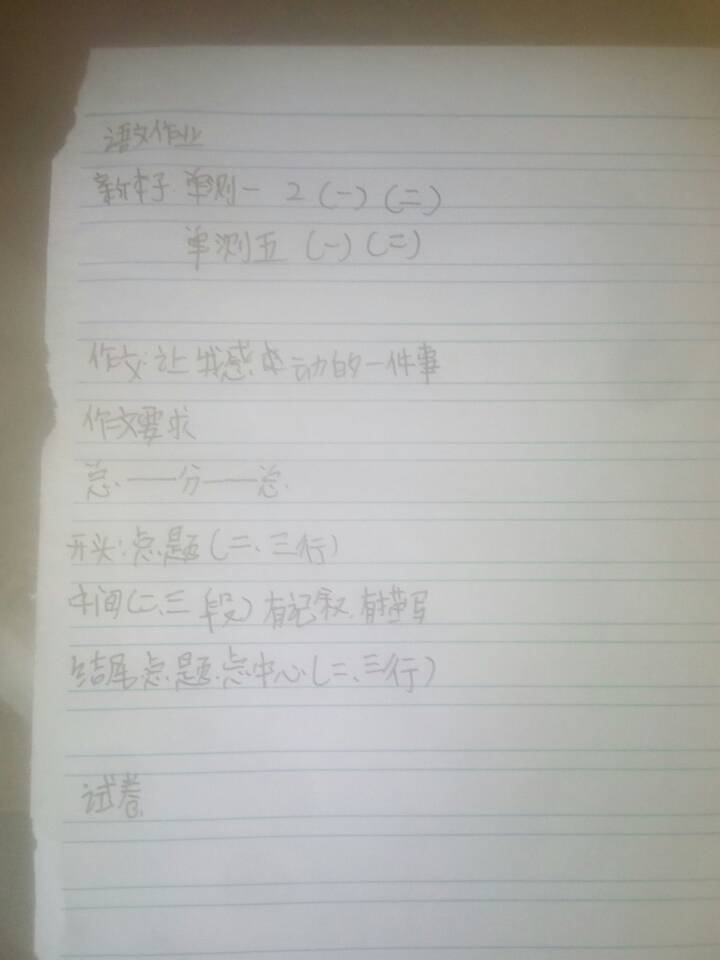 语文作业
新本子 单测一 2 (一) (二)
单测五 (一) (二)
作文:让我感动的一件事
作文要求
总——分——总
开头:点题(二、三行)
中间(二、三段)有记叙.有描写
结尾.点题.点中心(二、三行)
试卷